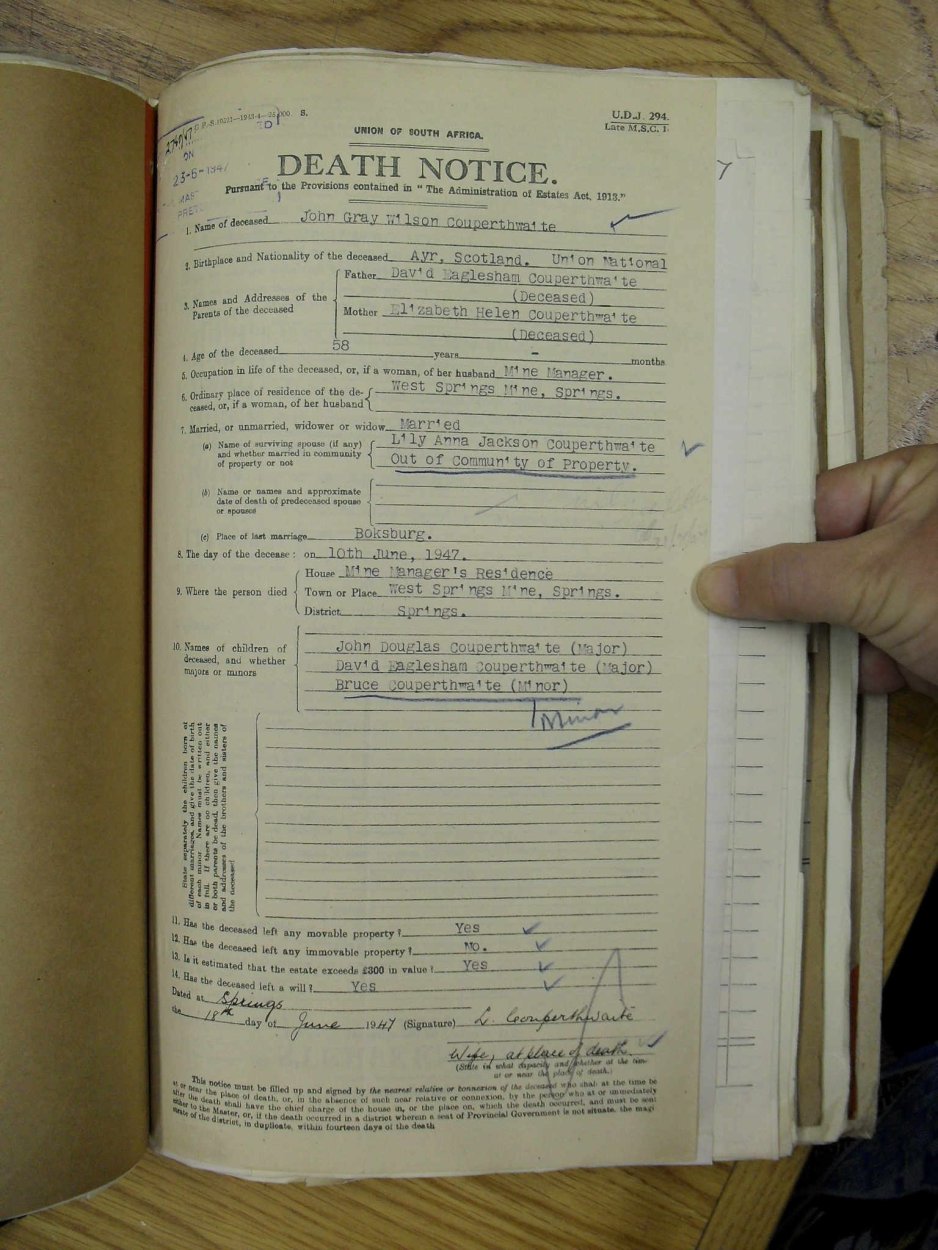 U.D.J. 294.
Late M.S.C. 1
S.
2740/47
ON
23-6-1947
UNION OF SOUTH AFRICA.
DEATH NOTICE.
Pursuant to the Provisions contained in "The Administration of Estates Act, 1913."
1. Name of deceased John Gray Wilson Couperthwaite
2. Birthplace and Nationality of the deceased Ayr, Scotland. Union National
3. Names and Addresses of the Parents of the deceased
Father David Eaglesham Couperthwaite
(Deceased)
Mother Elizabeth Helen Couperthwaite
(Deceased)
4. Age of the deceased 58 years - months
5. Occupation in life of the deceased, or, if a woman, of her husband Mine Manager.
6. Ordinary place of residence of the de-
ceased, or, if a woman, of her husband
West Springs Mine, Springs.
7. Married, or unmarried, widower or widow Married
(a) Name of surviving spouse (if any)
and whether married in community
of property or not
Lily Anna Jackson Couperthwaite
Out of Community of Property.
(b) Name or names and approximate
date of death of predeceased spouse
or spouses
(c) Place of last marriage Boksburg.
8. The day of the decease : on 10th June, 1947.
9. Where the person died
House Mine Manager's Residence
Town or Place West Springs Mine, Springs.
District Springs.
10. Names of children of
deceased, and whether
majors or minors
John Douglas Couperthwaite (Major)
David Eaglesham Couperthwaite (Major)
Bruce Couperthwaite (Minor)
1 Minor
State separately the children born of
different marriages, and give the date of birth
of each minor. Names must be written out
in full. If there are no children, and either
or both parents be dead, then give the names
and addresses of the brothers and sisters of
the deceased
11. Has the deceased left any movable property? Yes
12. Has the deceased left any immovable property? No.
13. Is it estimated that the estate exceeds £300 in value? Yes
14. Has the deceased left a will? Yes
Dated at Springs
the 18th day of June 1947 (Signature) L. Couperthwaite
Wife, at place of death
(State in what capacity and whether at the time
at or near the place of death.)
This notice must be filled up and signed by the nearest relative or connexion of the deceased who shall at the time be
at or near the place of death, or, in the absence of such near relative or connexion, by the person who at or immediately
after the death shall have the chief charge of the house in, or the place on, which the death occurred, and must be sent
either to the Master, or, if the death occurred in a district wherein a seat of Provincial Government is not situate, the magi
strate of the district, in duplicate, within fourteen days of the death